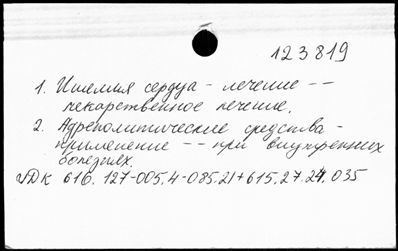 123819
1. Ишемия сердца - лечение --
лекарственное лечение.
2. Адренолитические средства -
применение -- при внутренних
болезнях.
УДК 616.127-005.4-085.21+615.27.24.035